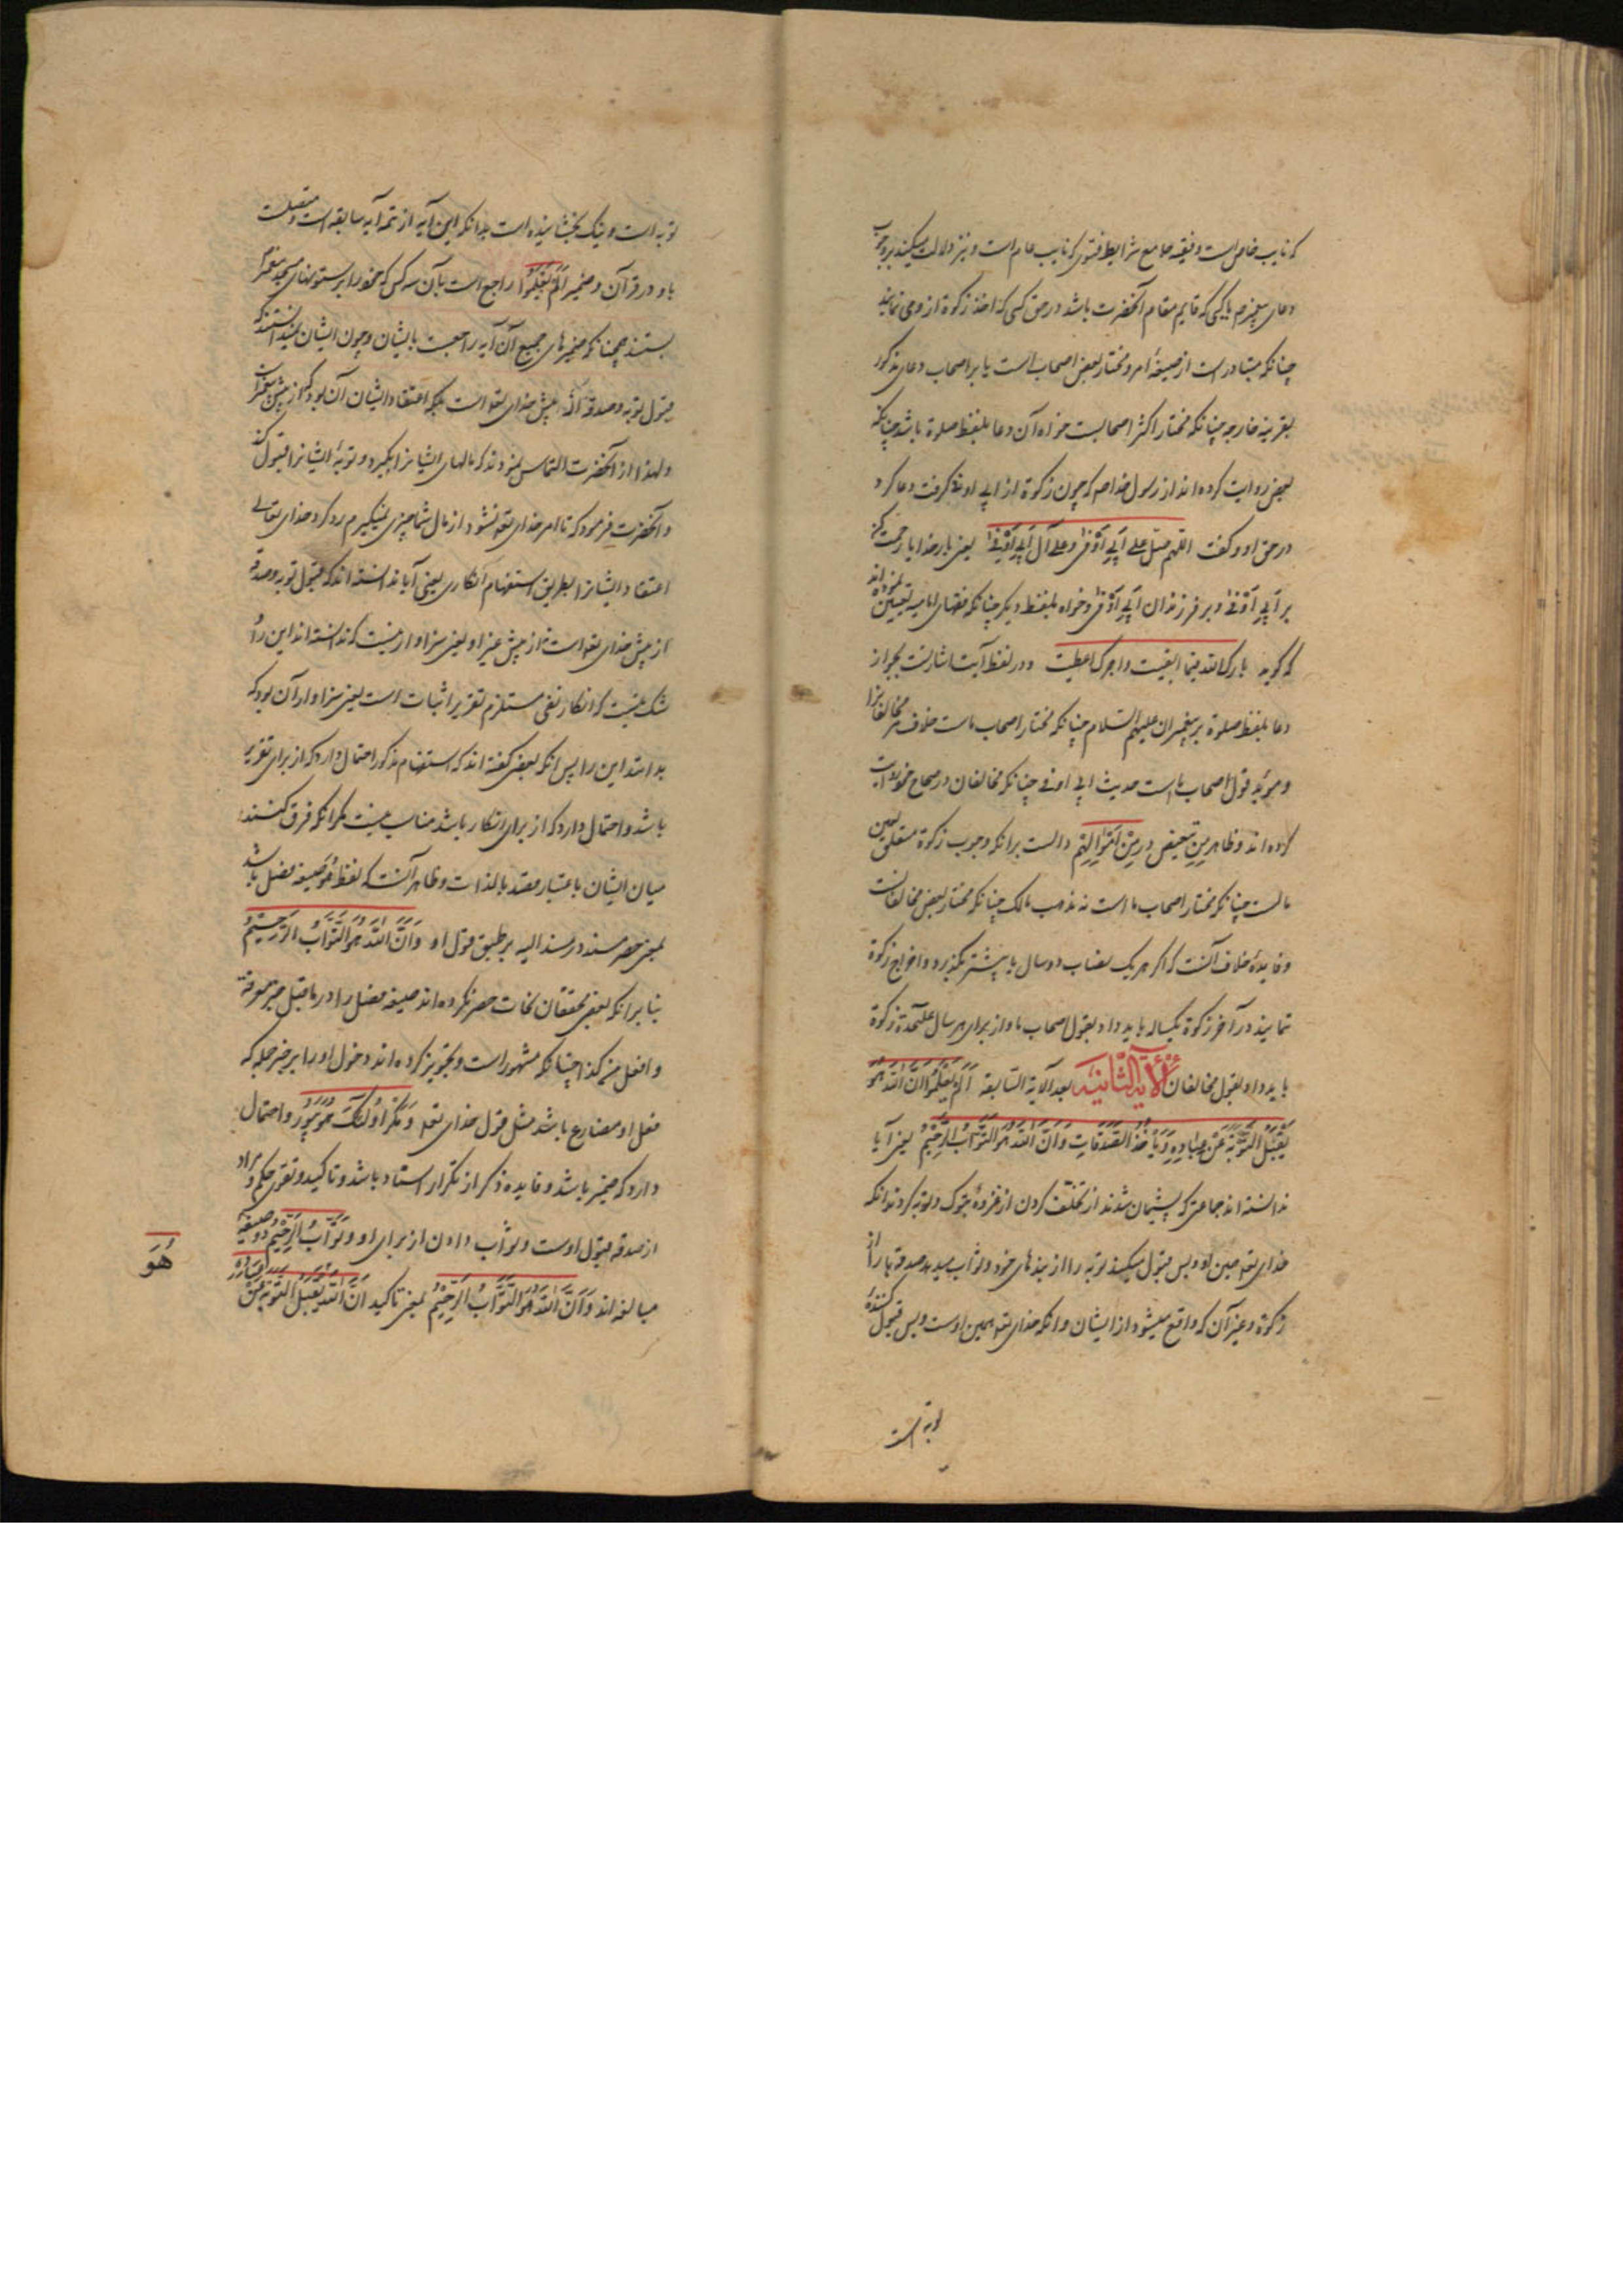 که نایب خاص است و فقیه جامع شرایط فتوی که نایب عام است و نیز دلالت میکند بر وجوب
دعای پیغمبر م یا کسی که قایم مقام آنحضرت باشد در حق کسی که اخذ زکوة از وی نمایند
چنانکه متبادر است از صیغهٔ امر و مختار بعض اصحاب است یا بر اصحاب دعای مذکور
بقرینه خارجه چنانکه مختار اکثر اصحابست خواه آن دعا بلفظ صلوة باشد چنانکه
بعض روایت کرده اند از رسول خدا صم که چون زکوة از ابی اوفی گرفت دعا کرد
در حق او و گفت اللهم صل علی اَبی اَوْفی و علی آل اَبی اَوْفی یعنی بار خدایا رحمت کن
بر اَبی اَوْفی و بر فرزندان اَبی اَوْفی و خواه بلفظ دیگر چنانکه فقهای امامیه تعیین نموده اند
که گوید بارک الله فیما ابقیت و اجرک اعطیت و در لفظ آیت اشارتست بجواز
دعا بلفظ صلوة بر پیغمبران علیهم السلام چنانکه مختار اصحاب ماست خلاف مر مخالفانرا
و مؤید قول اصحاب ماست حدیث ابی اوفی چنانکه مخالفان در صحاح خود روایت
کرده اند و ظاهر مِنِ تبعیض در مِنْ اَمْوالِهِمْ دالست برانکه وجوب زکوة متعلق بعین
مالست چنانکه مختار اصحاب ما است نه بذمب مالک چنانکه مختار بعض مخالفانست
و فایدهٔ خلاف آنست که اگر بر یک نصاب دو سال یا بیشتر بگذرد و اخراج زکوة
نمایند در آخر زکوة یکساله باید داد بقول اصحاب ما و از برای هر سال علیحدة زکوة
باید داد بقول مخالفان اَلْآیَةُ الثّانِیَه بعد الآیة السّابقه اَلَمْ یَعْلَمُوا اَنَّ اللّهَ هُوَ
یَقْبَلُ التَّوْبَةَ عَنْ عِبادِهِ وَ یَأْخُذُ الصَّدَقاتِ وَ اَنَّ اللّهَ هُوَ التَّوّابُ الرَّحِیْمُ یعنی آیا
ندانسته اند جماعتی که پشیمان شدند از تخلف کردن از غزوهٔ تبوک و توبه کردند انکه
خدای تعه همین او و بس قبول میکند توبه را از بنده های خود و ثواب میدهد صدقه ها را از
زکوة و غیر آن که واقع میشود از ایشان و انکه خدای تعه همین اوست و بس قبول کنندهٔ
توبه است
توبه است و نیک بخشاینده است بدانکه این آیه از تتمه آیه سابقه است و متصلست
باو در قرآن و ضمیر اَلَمْ یَعْلَمُوا راجع است بآن سه کس که خود را بر ستونهای مسجد پیغمبر
بستند همچنانکه ضمیرهای جمیع آن آیه راجعست بایشان و چون ایشان میدانستند که
قبول توبه و صدقه از پیش خدای تعه است بلکه اعتقاد ایشان آن بود که از پیش پیغمبر است
و لهذا از آنحضرت التماس نمودند که مالهای ایشانرا بگیرد و توبهٔ ایشانرا قبول کند
و آنحضرت فرمود که تا امر خدای تعه نشود از مال شما چیزی نمیگیرم رد کرد خدای تعالی
اعتقاد ایشانرا بطریق استفهام انکاری یعنی آیا ندانسته اند که قبول توبه و صدقه
از پیش خدای تعه است نه از پیش غیر او یعنی سزاوار نیست که ندانسته اند این را و
شک نیست که انکار نفی مستلزم تقریر اثبات است یعنی سزاوار آن بود که
بدانند این را پس انکه بعض گفته اند که استفهام مذکور احتمال دارد که از برای تقریر
باشد و احتمال دارد که از برای انکار باشد مناسب نیست مگر انکه فرق کنند
میان ایشان باعتبار مقصد بالذات و ظاهر آنست که لفظ هُوَ صیغه فصل باشد
بمعنی حصر مسند در مسند الیه بر طبق قول او وَ اَنَّ اللّهَ هُوَ التَّوّابُ الرَّحِیْمُ
بنا برانکه بعض محققان نحات حصر نکرده اند صیغه فصل را در ماقبل خبر معرفة
و افعل من کذا چنانکه مشهور است و تجویز کرده اند دخول او را بر خبر جمله که
فعل او مضارع باشد مثل قول خدای تعه وَ مَکْرُ اُولئِکَ هُوَ یَبُورُ و احتمال
دارد که ضمیر باشد و فایده ذکر از تکرار اسناد باشد و تاکید و تقوی حکم و مراد
از صدقه قبول اوست و ثواب دادن از برای او و تَوّابُ الرَّحِیْمُ دو صیغهٔ
مبالغه اند وَ اَنَّ اللّهَ هُوَ التَّوّابُ الرَّحِیْمُ بمعنی تاکید اَنَّ اللّهَ یَقْبَلُ التَّوْبَةَ عَنْ عِبادِهِ
هُوَ